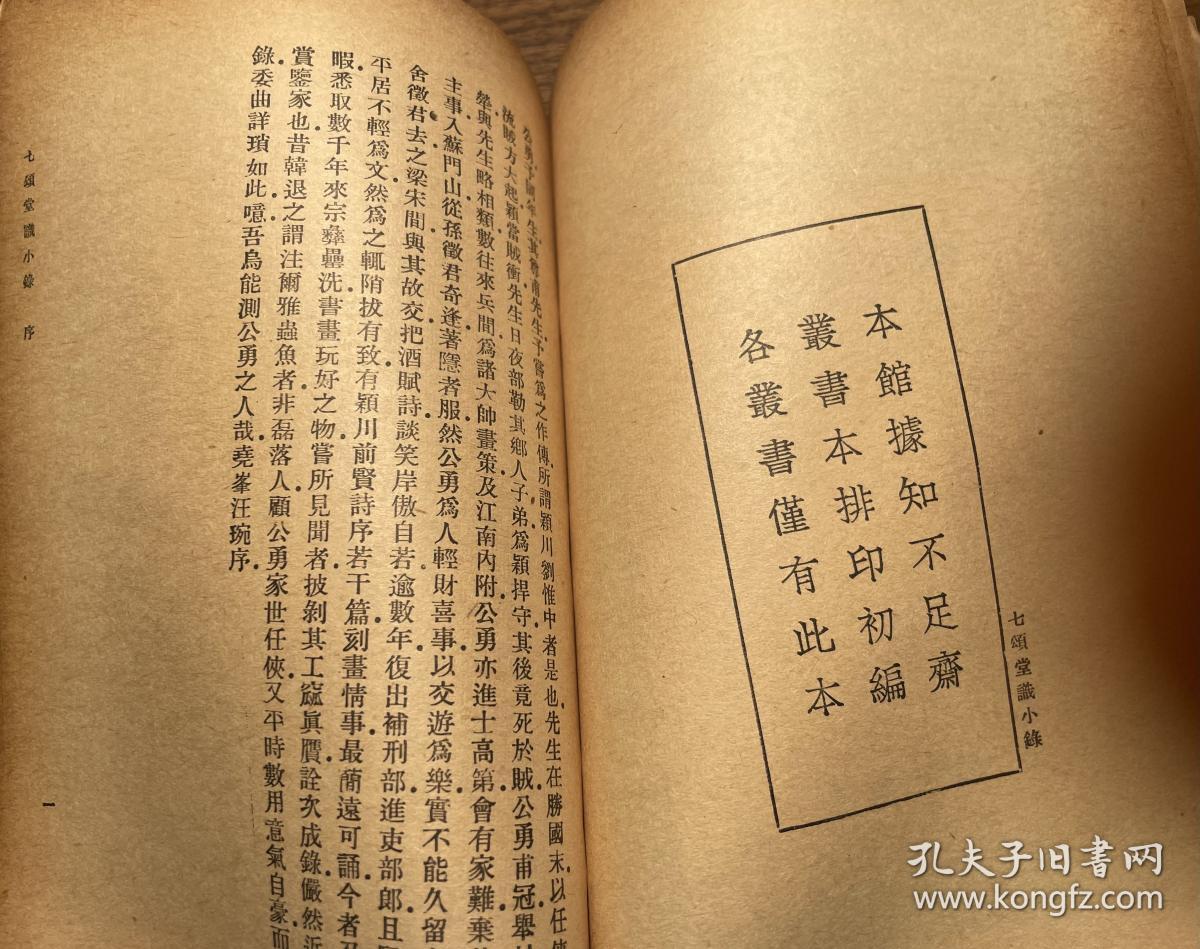 本館據知不足齋
叢書本排印初編
各叢書僅有此本
七頌堂識小錄
公勇予同年生其尊甫先生予嘗爲之作傳所謂潁川劉惟中者是也先生在勝國末以任俠
流賊方大起潁當賊衝先生日夜部勒其鄉人子弟爲潁捍守其後竟死於賊公勇甫冠舉
犖與先生略相類數往來兵間爲諸大帥畫策及江南內附公勇亦進士高第會有家難棄
主事入蘇門山從孫徵君奇逢著隱者服然公勇爲人輕財喜事以交遊爲樂實不能久留
舍徵君去之梁宋間與其故交把酒賦詩談笑岸傲自若逾數年復出補刑部進吏部郎且
平居不輕爲文然爲之輒陗拔有致有潁川前賢詩序若干篇刻畫情事最蕳遠可誦今者
暇悉取數千年來宗彝罍洗書畫玩好之物嘗所見聞者披剝其工窳眞贋詮次成錄儼然近
賞鑒家也昔韓退之謂注爾雅蟲魚者非磊落人顧公勇家世任俠又平時數用意氣自豪而
錄委曲詳瑣如此噫吾烏能測公勇之人哉堯峯汪琬序
七頌堂識小錄 序
一
孔夫子旧书网
www.kongfz.com